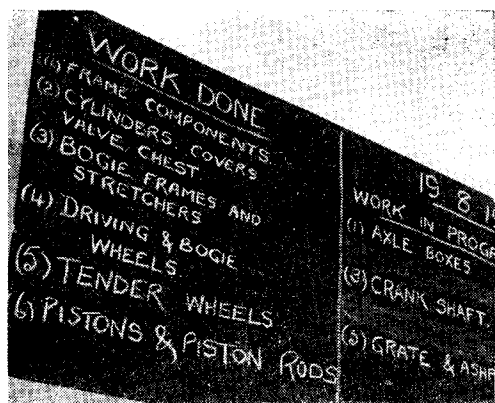 WORK DONE
(1) FRAME COMPONENTS
(2) CYLINDERS COVERS
VALVE CHEST
(3) BOGIE FRAMES AND
STRETCHERS
(4) DRIVING & BOGIE
WHEELS
(5) TENDER WHEELS
(6) PISTONS & PISTON RODS
19 8 1
WORK IN PROG
(1) AXLE BOXES
(3) CRANK SHAFT.
(5) GRATE & ASH